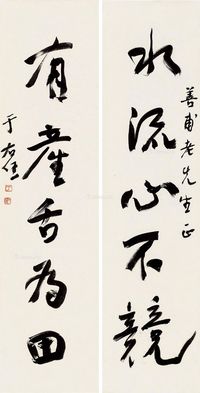 善甫老先生正
水流心不競
有產舌為田
于右任